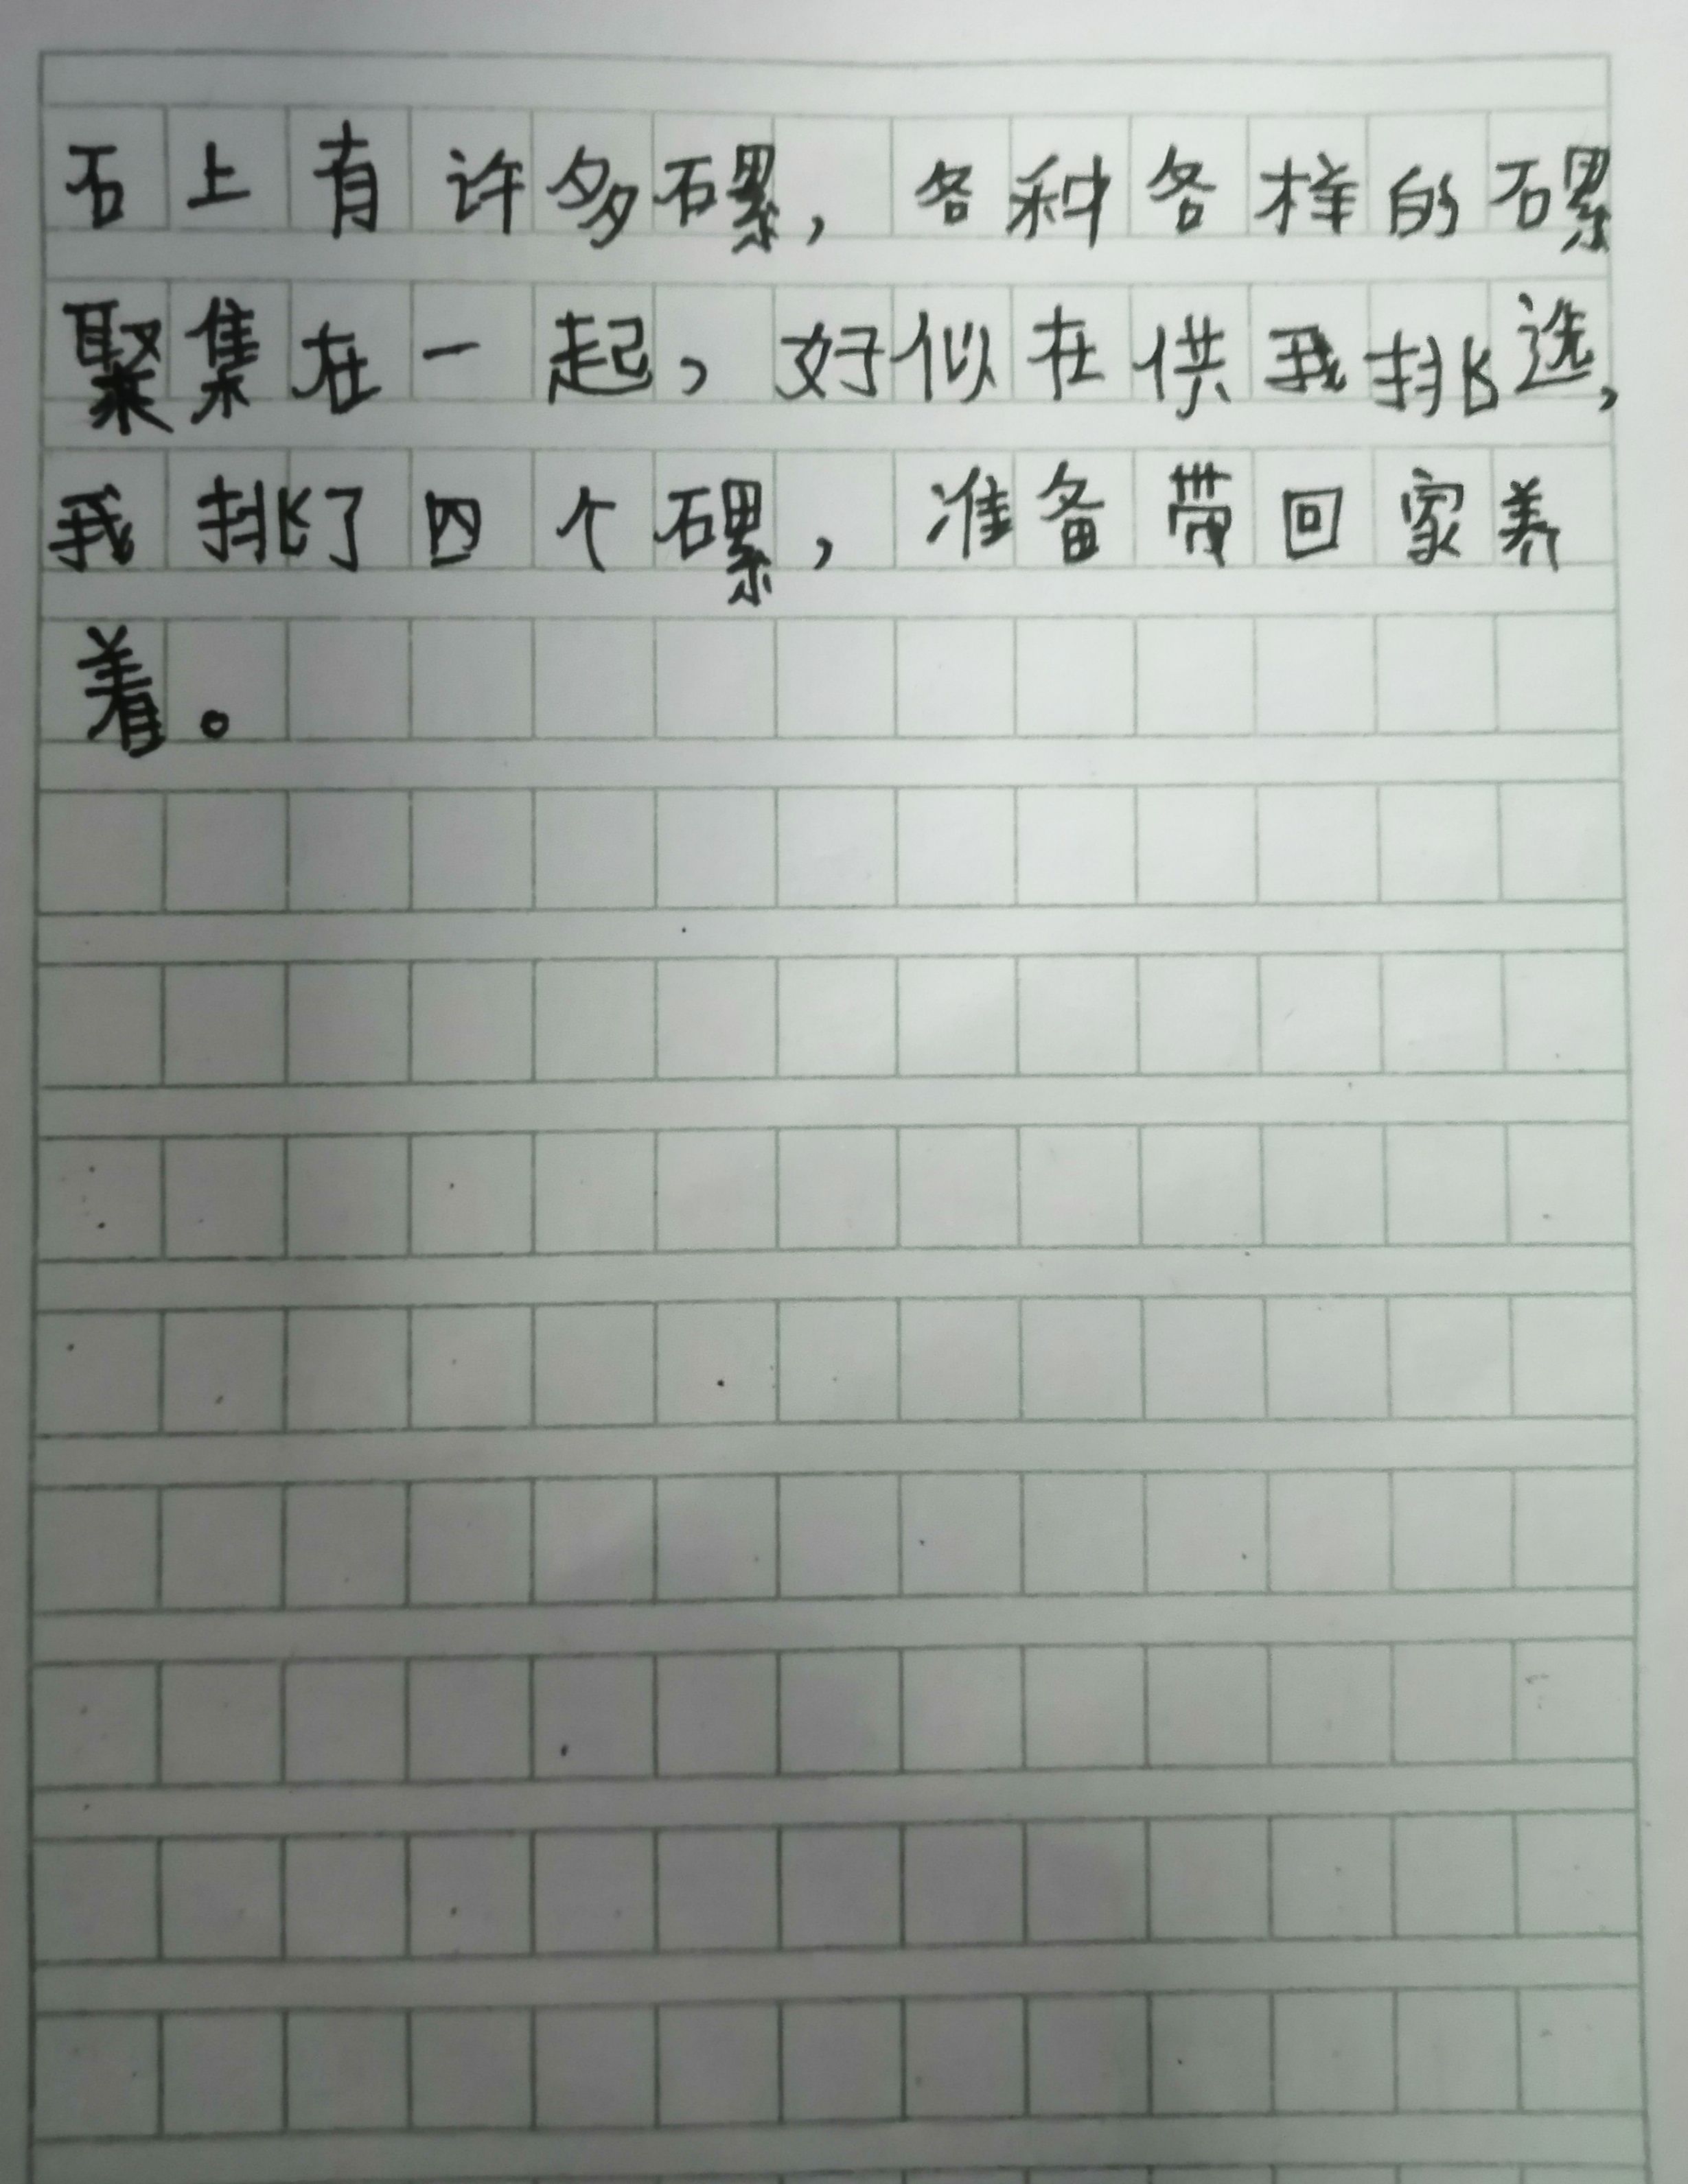 石上有许多磥，各种各样的磥
聚集在一起，好似在供我挑选，
我挑了四个磥，准备带回家养
着。